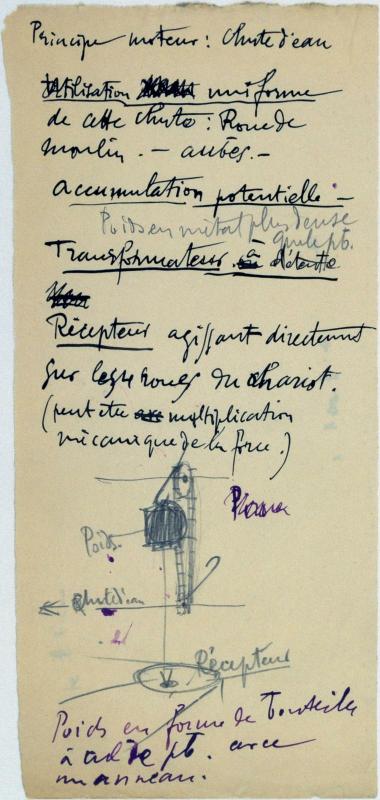 Principe moteur : Chute d'eau
Utilisation uniforme
de cette chute : Roue de
moulin. — aubes. —
accumulation potentielle —
Poids en métal plus dense
que le pb.
Transformateur à détente
Récepteur agissant directement
sur les roues du chariot.
(peut être multiplication
mécanique de la force.)
Poids
Chute d'eau
Récepteur
Poids en forme de bouteille
à de pb. avec
un anneau.